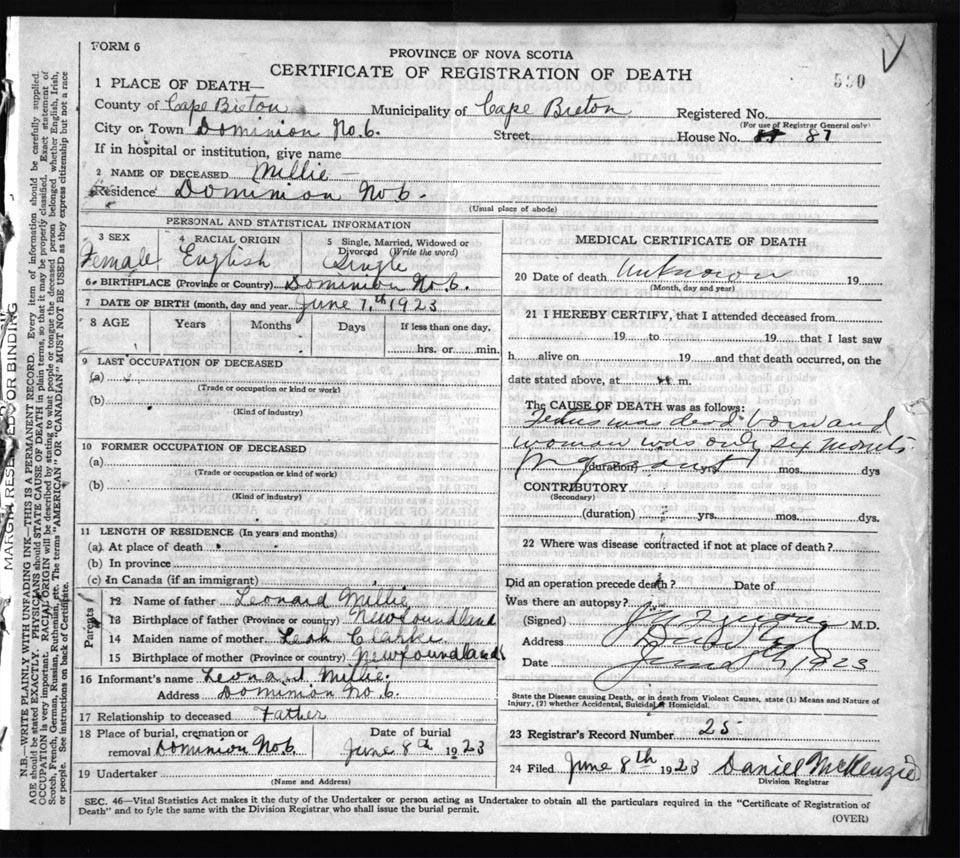 FORM 6
PROVINCE OF NOVA SCOTIA
CERTIFICATE OF REGISTRATION OF DEATH
590
1 PLACE OF DEATH—
County of Cape Breton Municipality of Cape Breton Registered No.
(For use of Registrar General only)
City or Town Dominion No. 6. Street House No. 87
If in hospital or institution, give name
2 NAME OF DECEASED Millie —
Residence Dominion No 6.
(Usual place of abode)
PERSONAL AND STATISTICAL INFORMATION
3 SEX 4 RACIAL ORIGIN 5 Single, Married, Widowed or Divorced (Write the word)
Female English Single
6. BIRTHPLACE (Province or Country) Dominion No 6.
7 DATE OF BIRTH (month, day and year) June 7th 1923
8 AGE Years Months Days If less than one day,
hrs. or min.
9 LAST OCCUPATION OF DECEASED
(a)
(Trade or occupation or kind or work)
(b)
(Kind of industry)
10 FORMER OCCUPATION OF DECEASED
(a)
(Trade or occupation or kind of work)
(b)
(Kind of industry)
11 LENGTH OF RESIDENCE (In years and months)
(a) At place of death
(b) In province
(c) In Canada (if an immigrant)
Parents
12 Name of father Leonard Millie
13 Birthplace of father (Province or country) Newfoundland
14 Maiden name of mother Leah Clarke
15 Birthplace of mother (Province or country) Newfoundland
16 Informant's name Leonard Millie.
Address Dominion No 6.
17 Relationship to deceased Father
18 Place of burial, cremation or removal Dominion No 6 Date of burial June 8th 1923
19 Undertaker
(Name and Address)
MEDICAL CERTIFICATE OF DEATH
20 Date of death Unknown 19
(Month, day and year)
21 I HEREBY CERTIFY, that I attended deceased from
19 to 19 that I last saw
h alive on 19 and that death occurred, on the
date stated above, at m.
The CAUSE OF DEATH was as follows:
Fetus was dead born and
woman was only six months
(duration) yrs. mos. dys
CONTRIBUTORY
(Secondary)
(duration) yrs. mos. dys.
22 Where was disease contracted if not at place of death?
Did an operation precede death? Date of
Was there an autopsy?
(Signed) M.D.
Address
Date June 8th, 1923
State the Disease causing Death, or in death from Violent Causes, state (1) Means and Nature of Injury, (2) whether Accidental, Suicidal or Homicidal.
23 Registrar's Record Number 25
24 Filed June 8th 1923 Daniel McKenzie
Division Registrar
SEC. 46—Vital Statistics Act makes it the duty of the Undertaker or person acting as Undertaker to obtain all the particulars required in the "Certificate of Registration of
Death" and to fyle the same with the Division Registrar who shall issue the burial permit.
(OVER)
MARGIN RESERVED FOR BINDING
N.B.—WRITE PLAINLY WITH UNFADING INK—THIS IS A PERMANENT RECORD. Every item of information should be carefully supplied.
AGE should be stated EXACTLY. PHYSICIANS should STATE CAUSE OF DEATH in plain terms, so that it may be properly classified. Exact statement of
OCCUPATION is very important. RACIAL ORIGIN will be described by stating to what people or tongue the deceased person belonged whether English, Irish,
Scotch, French, German, Russian, Ruthenian, etc. The terms "AMERICAN" OR "CANADIAN" MUST NOT BE USED as they express citizenship but not a race
or people. See instructions on back of Certificate.